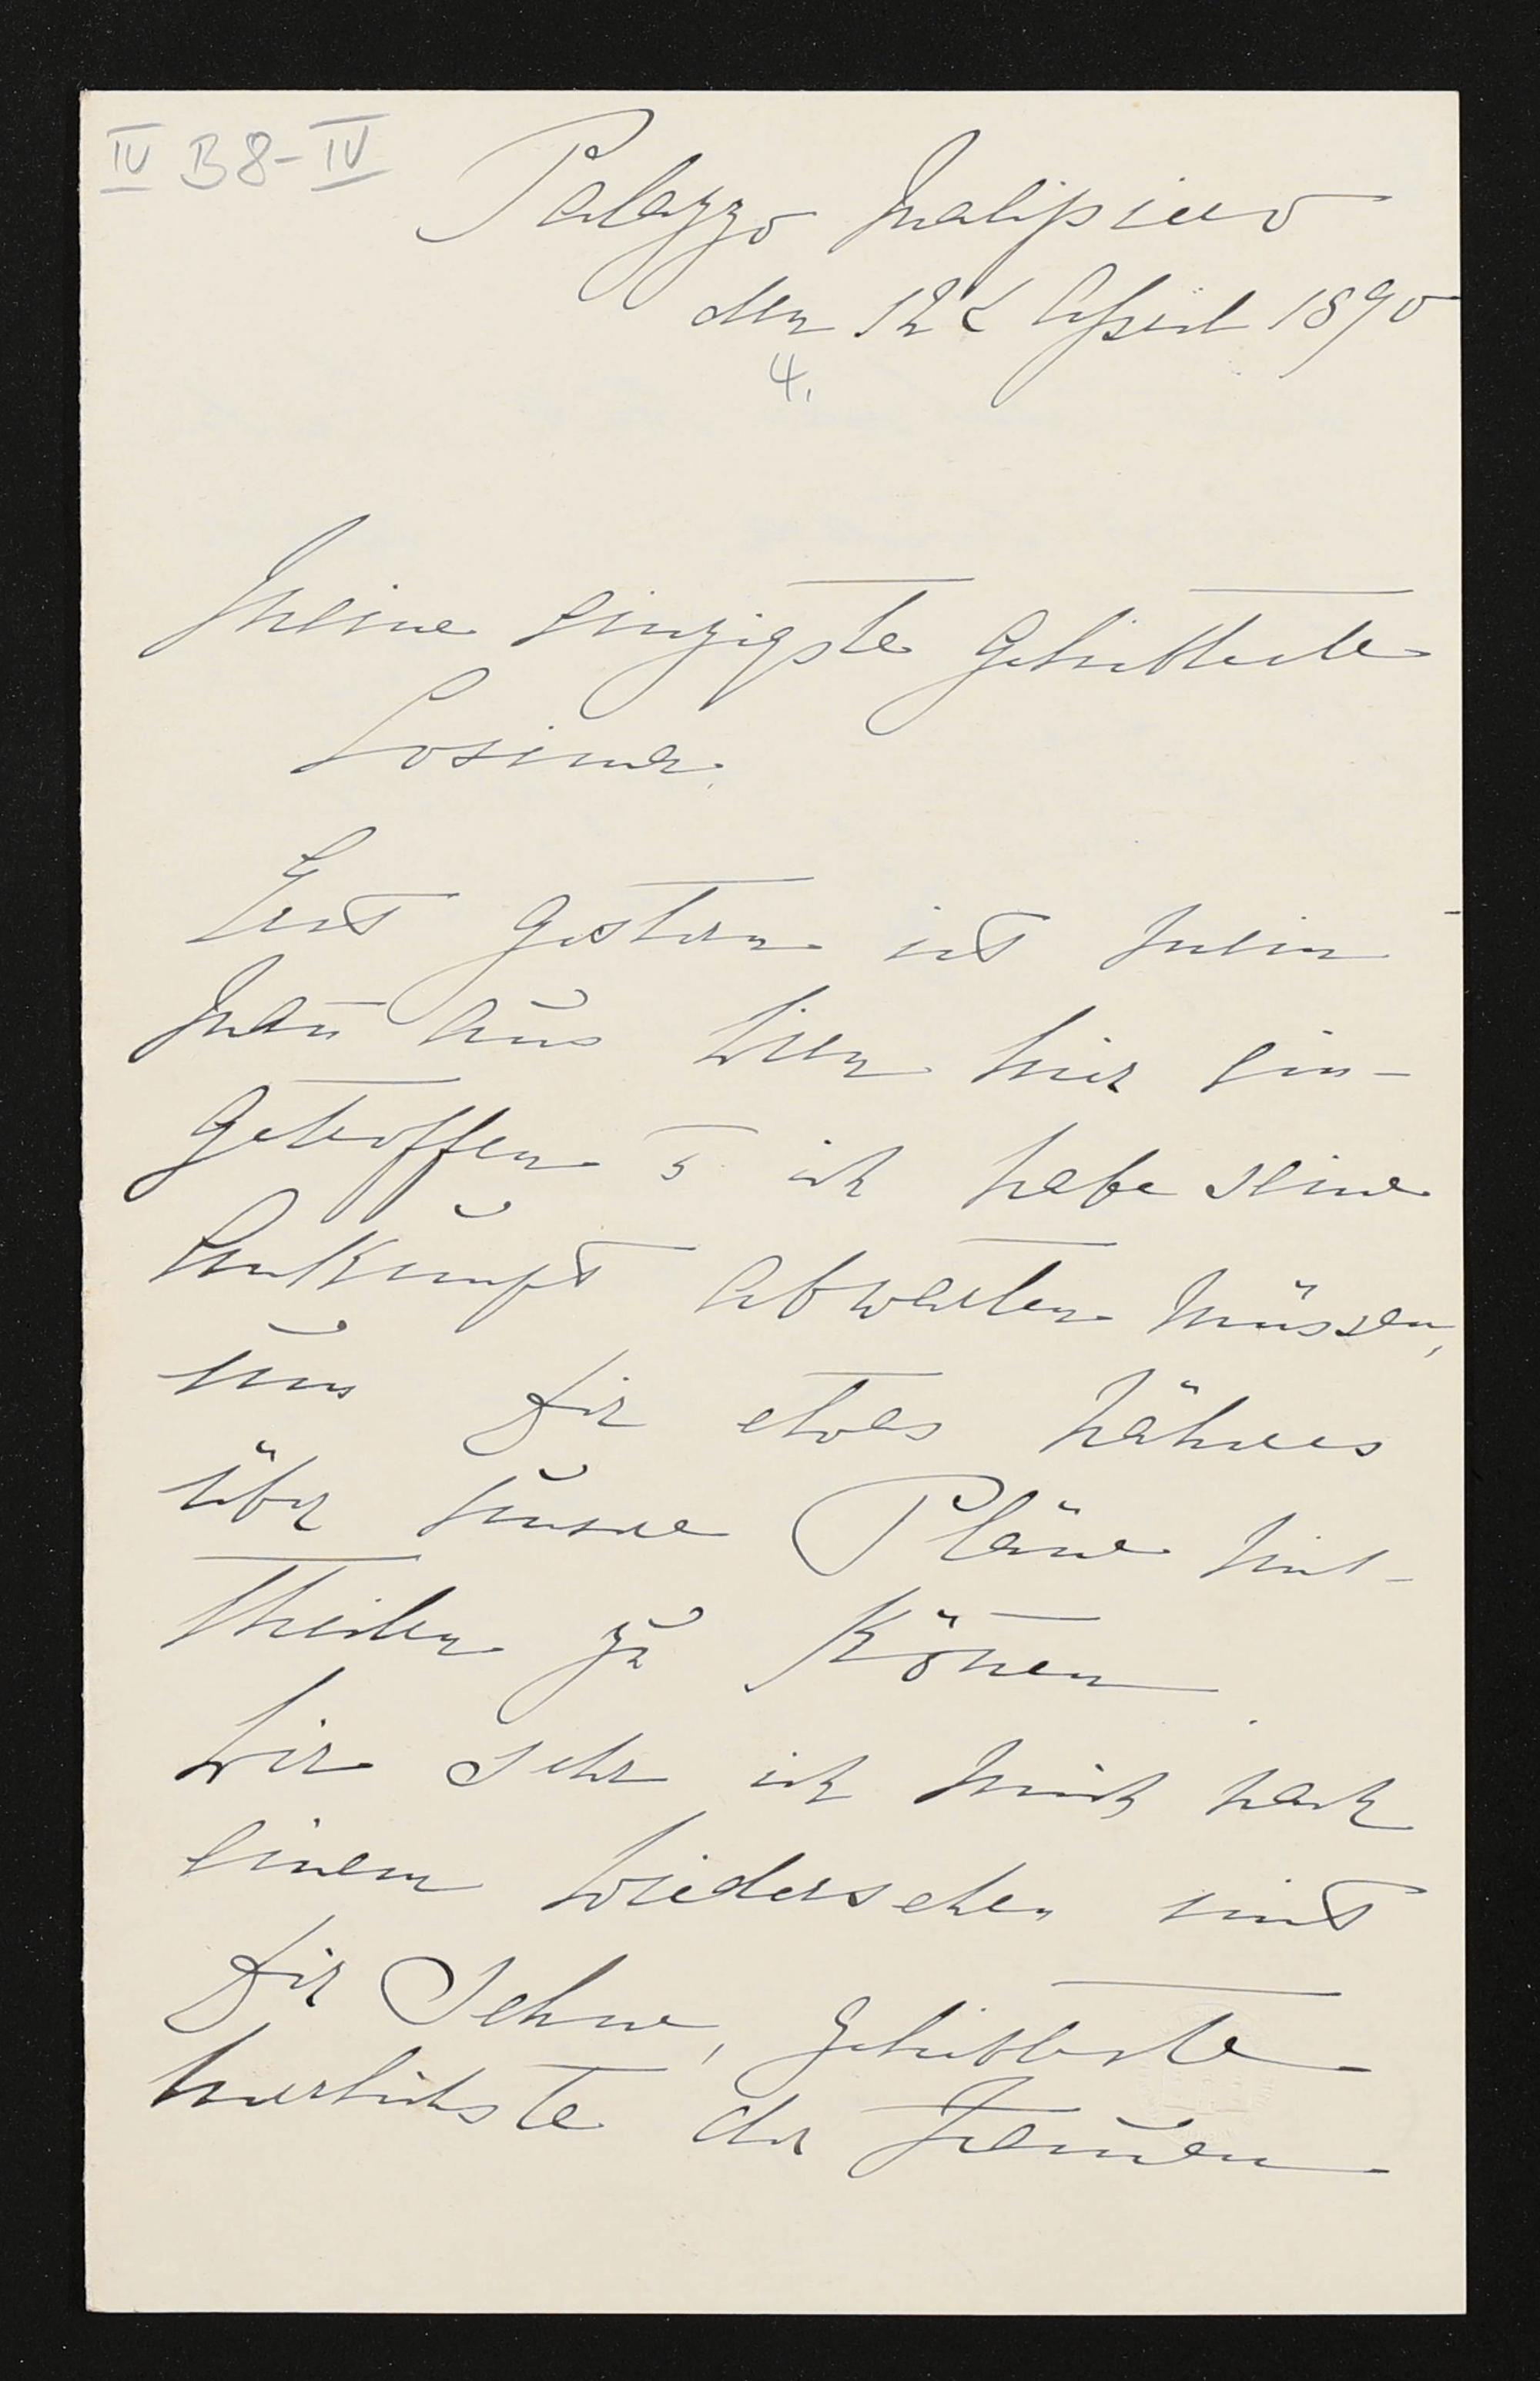 IV B8-IV
Palazzo Malipiero
den 12t April 1890
4.
Meine einzigste Geliebteste
Cosima.
Erst gestern ist mein
Man̄ aus Wien hier ein-
getroffen u ich habe seine
Ankunft abwarten müssen,
um Dir etwas näheres
über unsere Pläne mit-
theilen zu kön̄en
Wie sehr ich mich nach
einem Wiedersehen mit
Dir sehne, geliebteste
herrlichste der Frauen